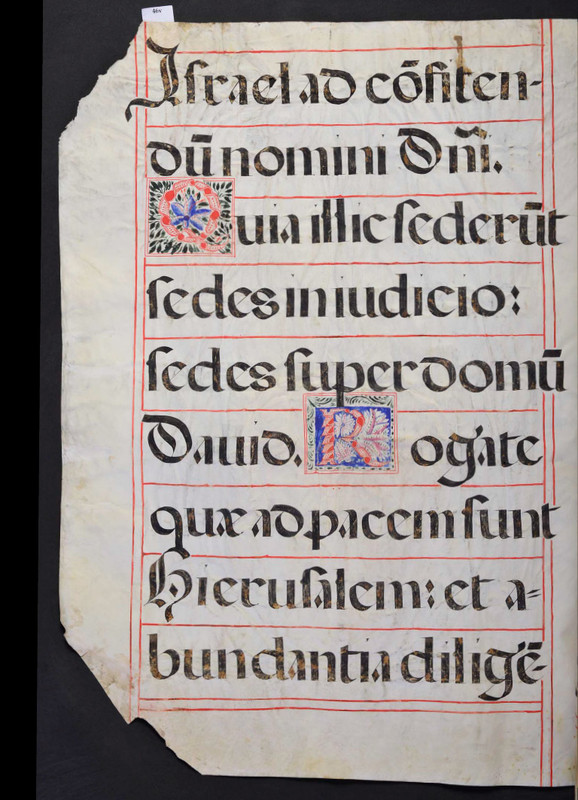 Israel ad cõfiten-
dũ nomini Dñi.
Quia illic ſederũt
ſedes in iudicio:
ſedes ſuper domũ
Dauid. Rogate
quæ ad pacem ſunt
Hieruſalem: et a-
bundantia diligẽ-